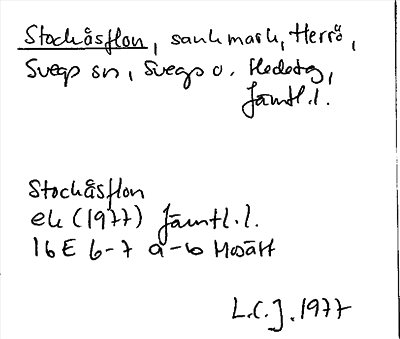 Stockåsflon, sankmark, Herrö,
Svegs sn, Svegs o. Hedetg,
Jämtl. l.
Stockåsflon
ek (1977) Jämtl. l.
16E 6-7 a-b Mosätt
L.C.J. 1977